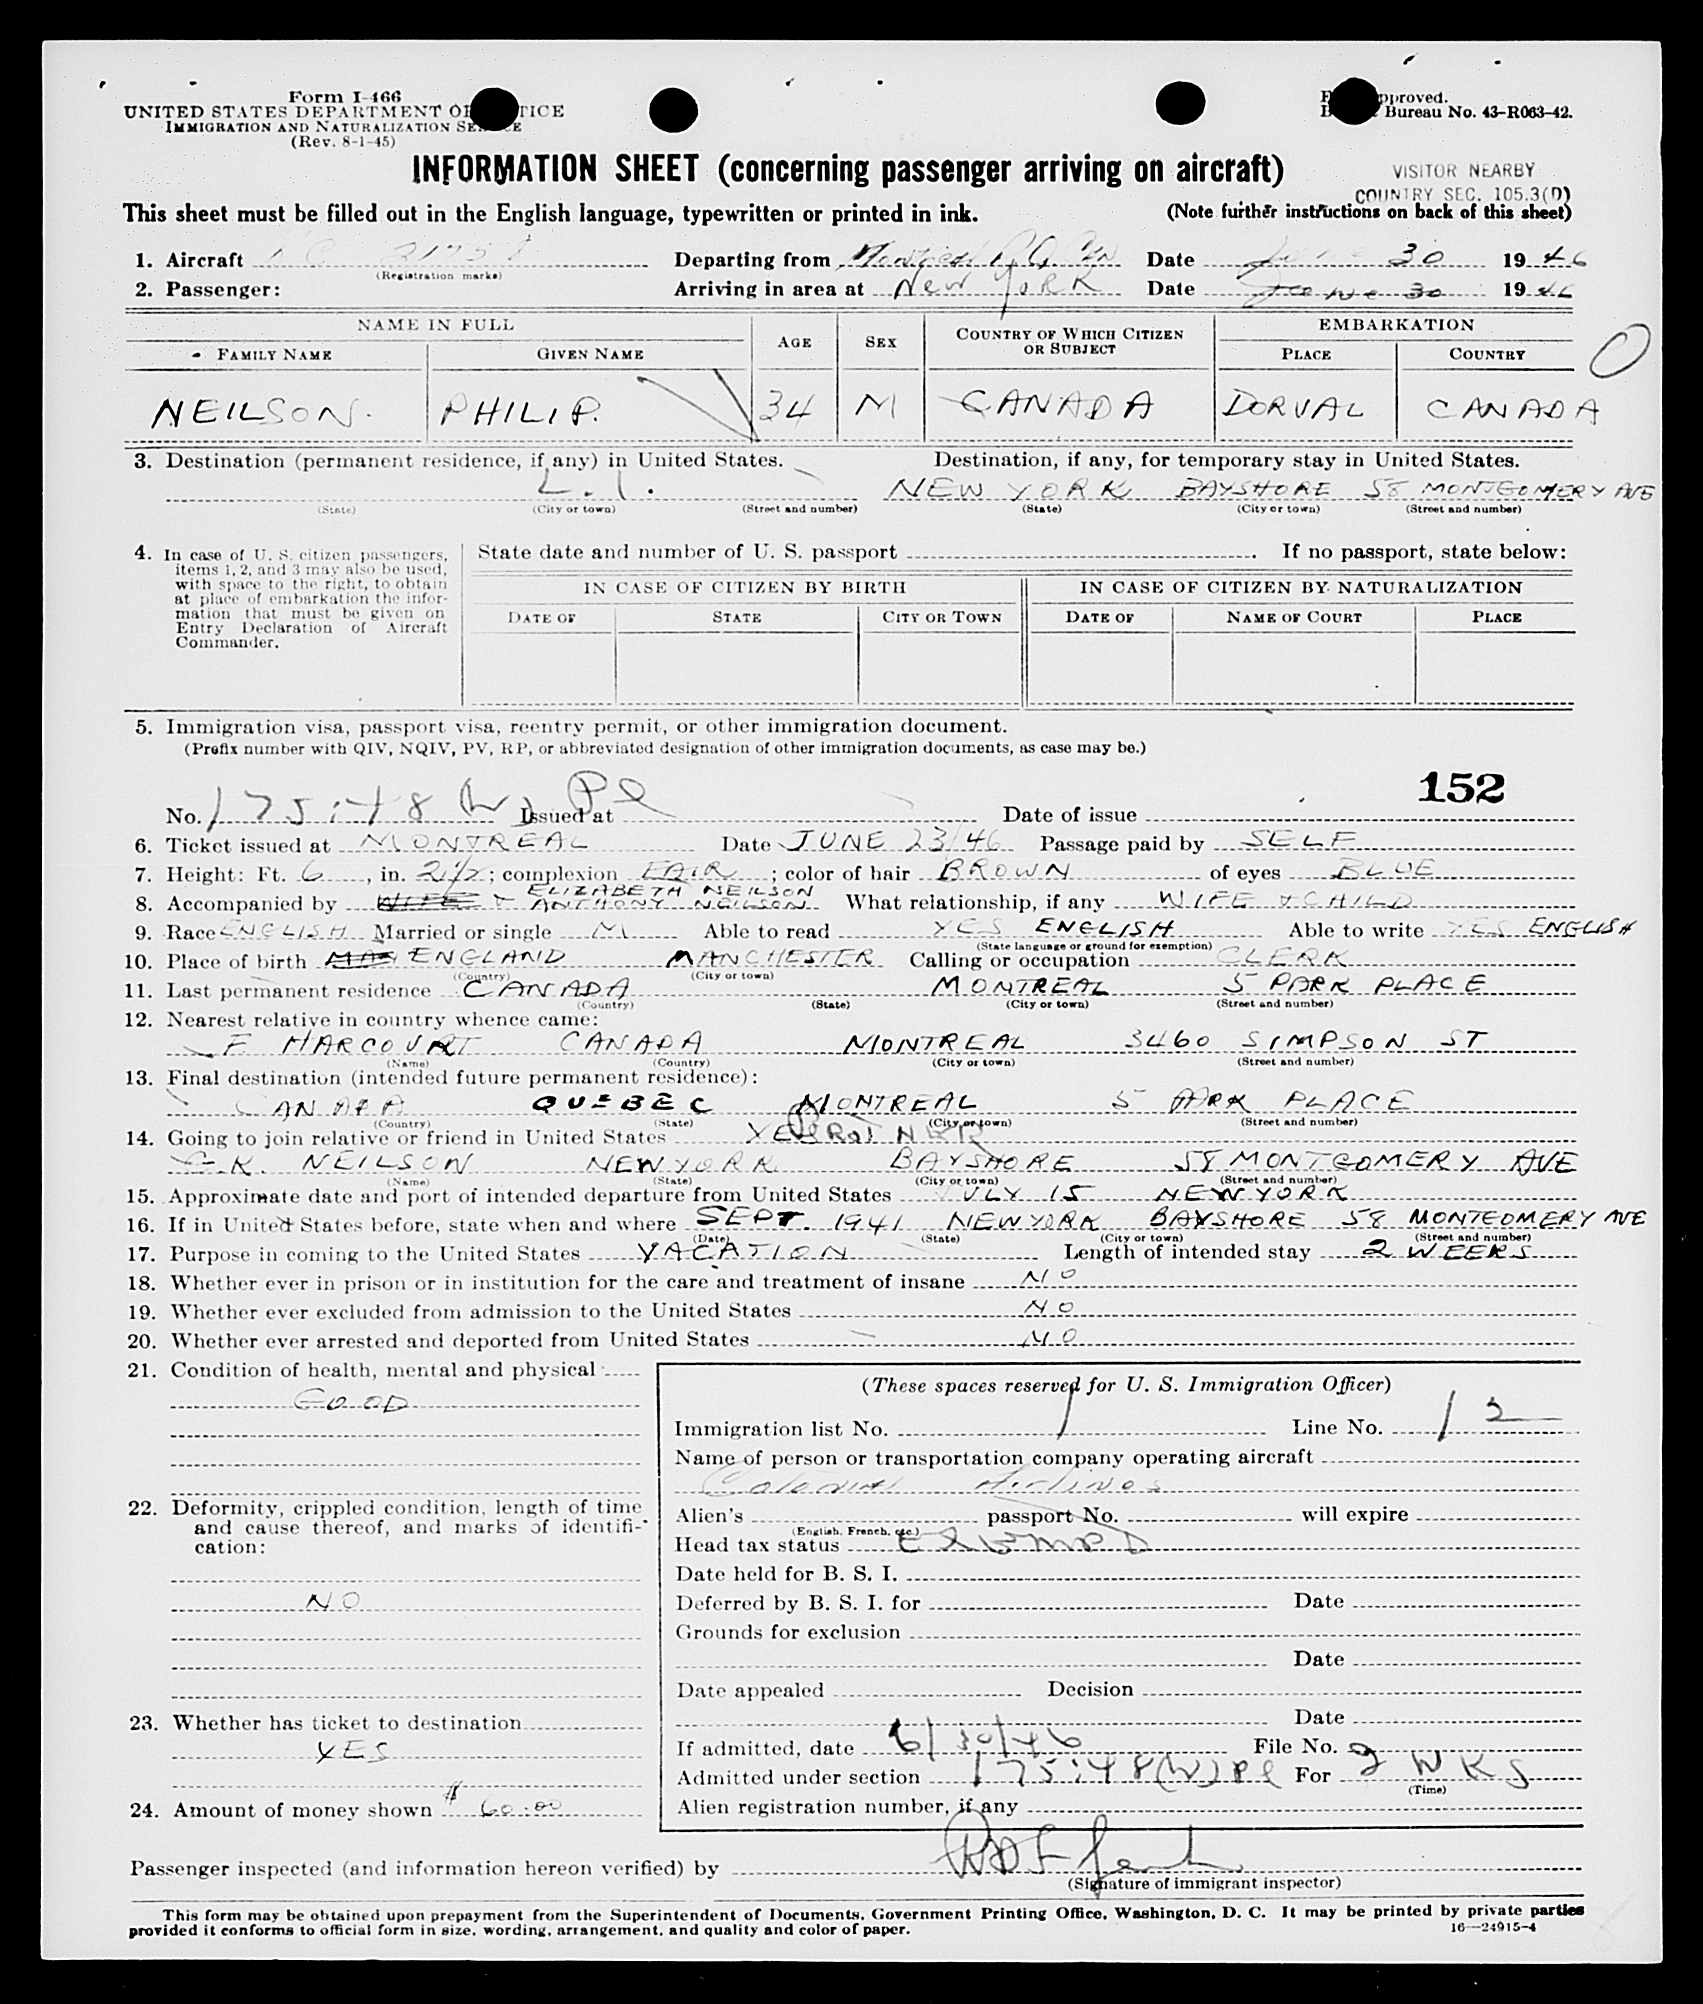 Form I-466
UNITED STATES DEPARTMENT OF JUSTICE
IMMIGRATION AND NATURALIZATION SERVICE
(Rev. 8-1-45)
Form approved.
Bureau No. 43-R063-42.
INFORMATION SHEET (concerning passenger arriving on aircraft)
VISITOR NEARBY
COUNTRY SEC. 105.3(D)
This sheet must be filled out in the English language, typewritten or printed in ink.
(Note further instructions on back of this sheet)
1. Aircraft (Registration marks) Departing from Montreal P.Q. Can Date June 30 1946
2. Passenger: Arriving in area at New York Date June 30 1946
NAME IN FULL AGE SEX COUNTRY OF WHICH CITIZEN OR SUBJECT EMBARKATION
FAMILY NAME GIVEN NAME PLACE COUNTRY
NEILSON. PHILIP. 34 M CANADA DORVAL CANADA
3. Destination (permanent residence, if any) in United States. Destination, if any, for temporary stay in United States.
L.I. NEW YORK BAYSHORE 58 MONTGOMERY AVE
(State) (City or town) (Street and number) (State) (City or town) (Street and number)
4. In case of U. S. citizen passengers, items 1, 2, and 3 may also be used, with space to the right, to obtain at place of embarkation the information that must be given on Entry Declaration of Aircraft Commander.
State date and number of U. S. passport If no passport, state below:
IN CASE OF CITIZEN BY BIRTH IN CASE OF CITIZEN BY NATURALIZATION
DATE OF STATE CITY OR TOWN DATE OF NAME OF COURT PLACE
5. Immigration visa, passport visa, reentry permit, or other immigration document.
(Prefix number with QIV, NQIV, PV, RP, or abbreviated designation of other immigration documents, as case may be.)
152
No. 175:48 (W) Pl Issued at Date of issue
6. Ticket issued at MONTREAL Date JUNE 23/46 Passage paid by SELF
7. Height: Ft. 6, in. 2 1/2; complexion FAIR; color of hair BROWN of eyes BLUE
ELIZABETH NEILSON
8. Accompanied by WIFE & ANTHONY NEILSON What relationship, if any WIFE & CHILD
9. Race ENGLISH Married or single M Able to read YES ENGLISH Able to write YES ENGLISH
(State language or ground for exemption)
10. Place of birth ENGLAND MANCHESTER Calling or occupation CLERK
(Country) (City or town)
11. Last permanent residence CANADA MONTREAL 5 PARK PLACE
(Country) (State) (City or town) (Street and number)
12. Nearest relative in country whence came:
F HARCOURT CANADA MONTREAL 3460 SIMPSON ST
(Name) (Country) (City or town) (Street and number)
13. Final destination (intended future permanent residence):
CANADA QUEBEC MONTREAL 5 PARK PLACE
(Country) (State) (City or town) (Street and number)
14. Going to join relative or friend in United States YES
G.K. NEILSON NEW YORK BAYSHORE 58 MONTGOMERY AVE
(Name) (State) (City or town) (Street and number)
15. Approximate date and port of intended departure from United States JULY 15 NEW YORK
16. If in United States before, state when and where SEPT. 1941 NEW YORK BAYSHORE 58 MONTGOMERY AVE
(Date) (State) (City or town) (Street and number)
17. Purpose in coming to the United States VACATION Length of intended stay 2 WEEKS
18. Whether ever in prison or in institution for the care and treatment of insane NO
19. Whether ever excluded from admission to the United States NO
20. Whether ever arrested and deported from United States NO
21. Condition of health, mental and physical
GOOD
22. Deformity, crippled condition, length of time and cause thereof, and marks of identification:
NO
23. Whether has ticket to destination
YES
24. Amount of money shown $ 60.00
(These spaces reserved for U. S. Immigration Officer)
Immigration list No. 1 Line No. 12
Name of person or transportation company operating aircraft
Colonial Airlines
Alien's passport No. will expire
(English, French, etc.)
Head tax status
Date held for B. S. I.
Deferred by B. S. I. for Date
Grounds for exclusion
Date
Date appealed Decision
Date
If admitted, date 6/30/46 File No.
Admitted under section 175:48(W) Pl For 2 WKS
(Time)
Alien registration number, if any
Passenger inspected (and information hereon verified) by
(Signature of immigrant inspector)
This form may be obtained upon prepayment from the Superintendent of Documents, Government Printing Office, Washington, D. C. It may be printed by private parties
provided it conforms to official form in size, wording, arrangement, and quality and color of paper.
16—24915-4